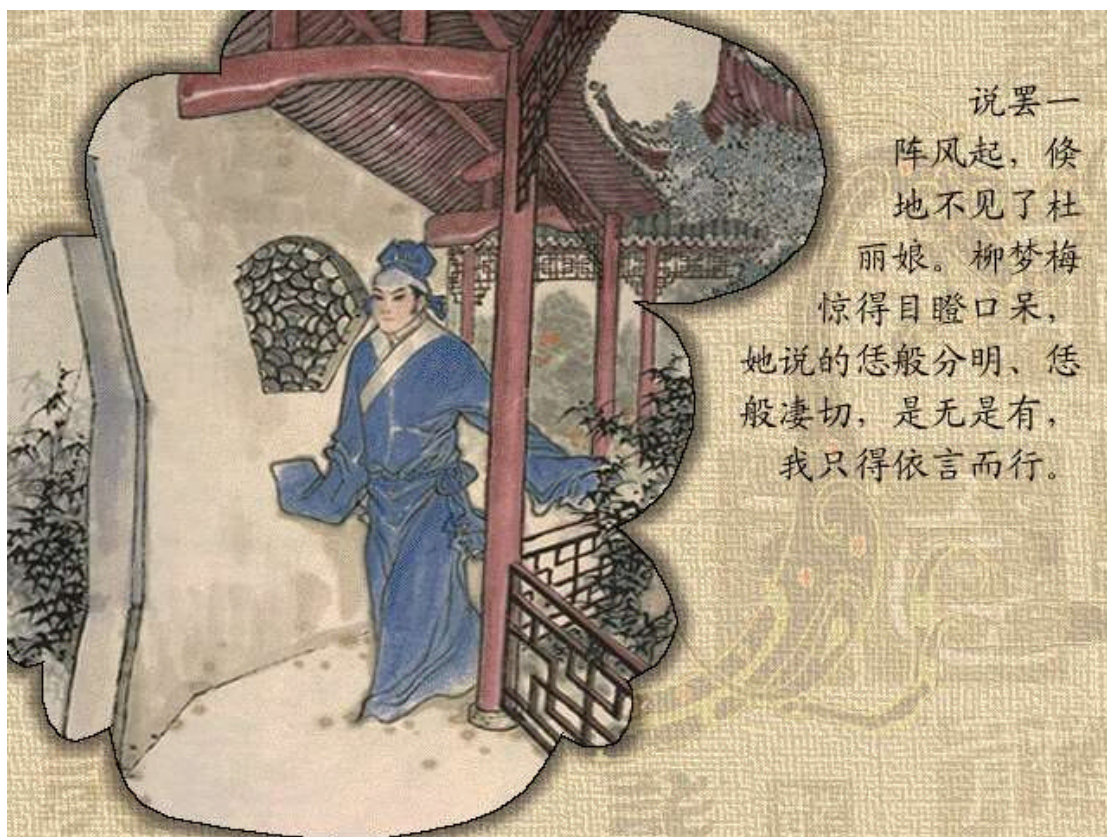 说罢一
阵风起，倏
地不见了杜
丽娘。柳梦梅
惊得目瞪口呆，
她说的恁般分明、恁
般凄切，是无是有，
我只得依言而行。